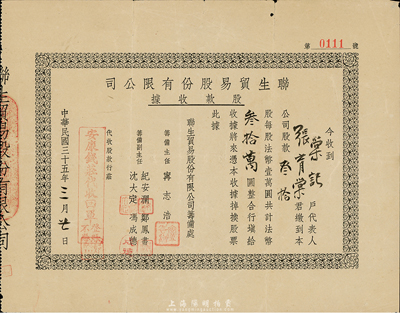 第 0111 號
司公限有份股易貿生聯
據收款股
今收到
棠記 戶代表人
張育棠 君繳到本
公司股款 叁拾
股每股法幣壹萬圓共計法幣
叁拾萬 圓整合行填給
收據將來憑本收據掉換股票
此據
聯生貿易股份有限公司籌備處
籌備主任 寗志浩
籌備副主任 紀安瀾 鄭鳳書
沈大定 馮成德
代收股款行莊
中華民國三十五年三月廿日
聯生貿易股份有限公司